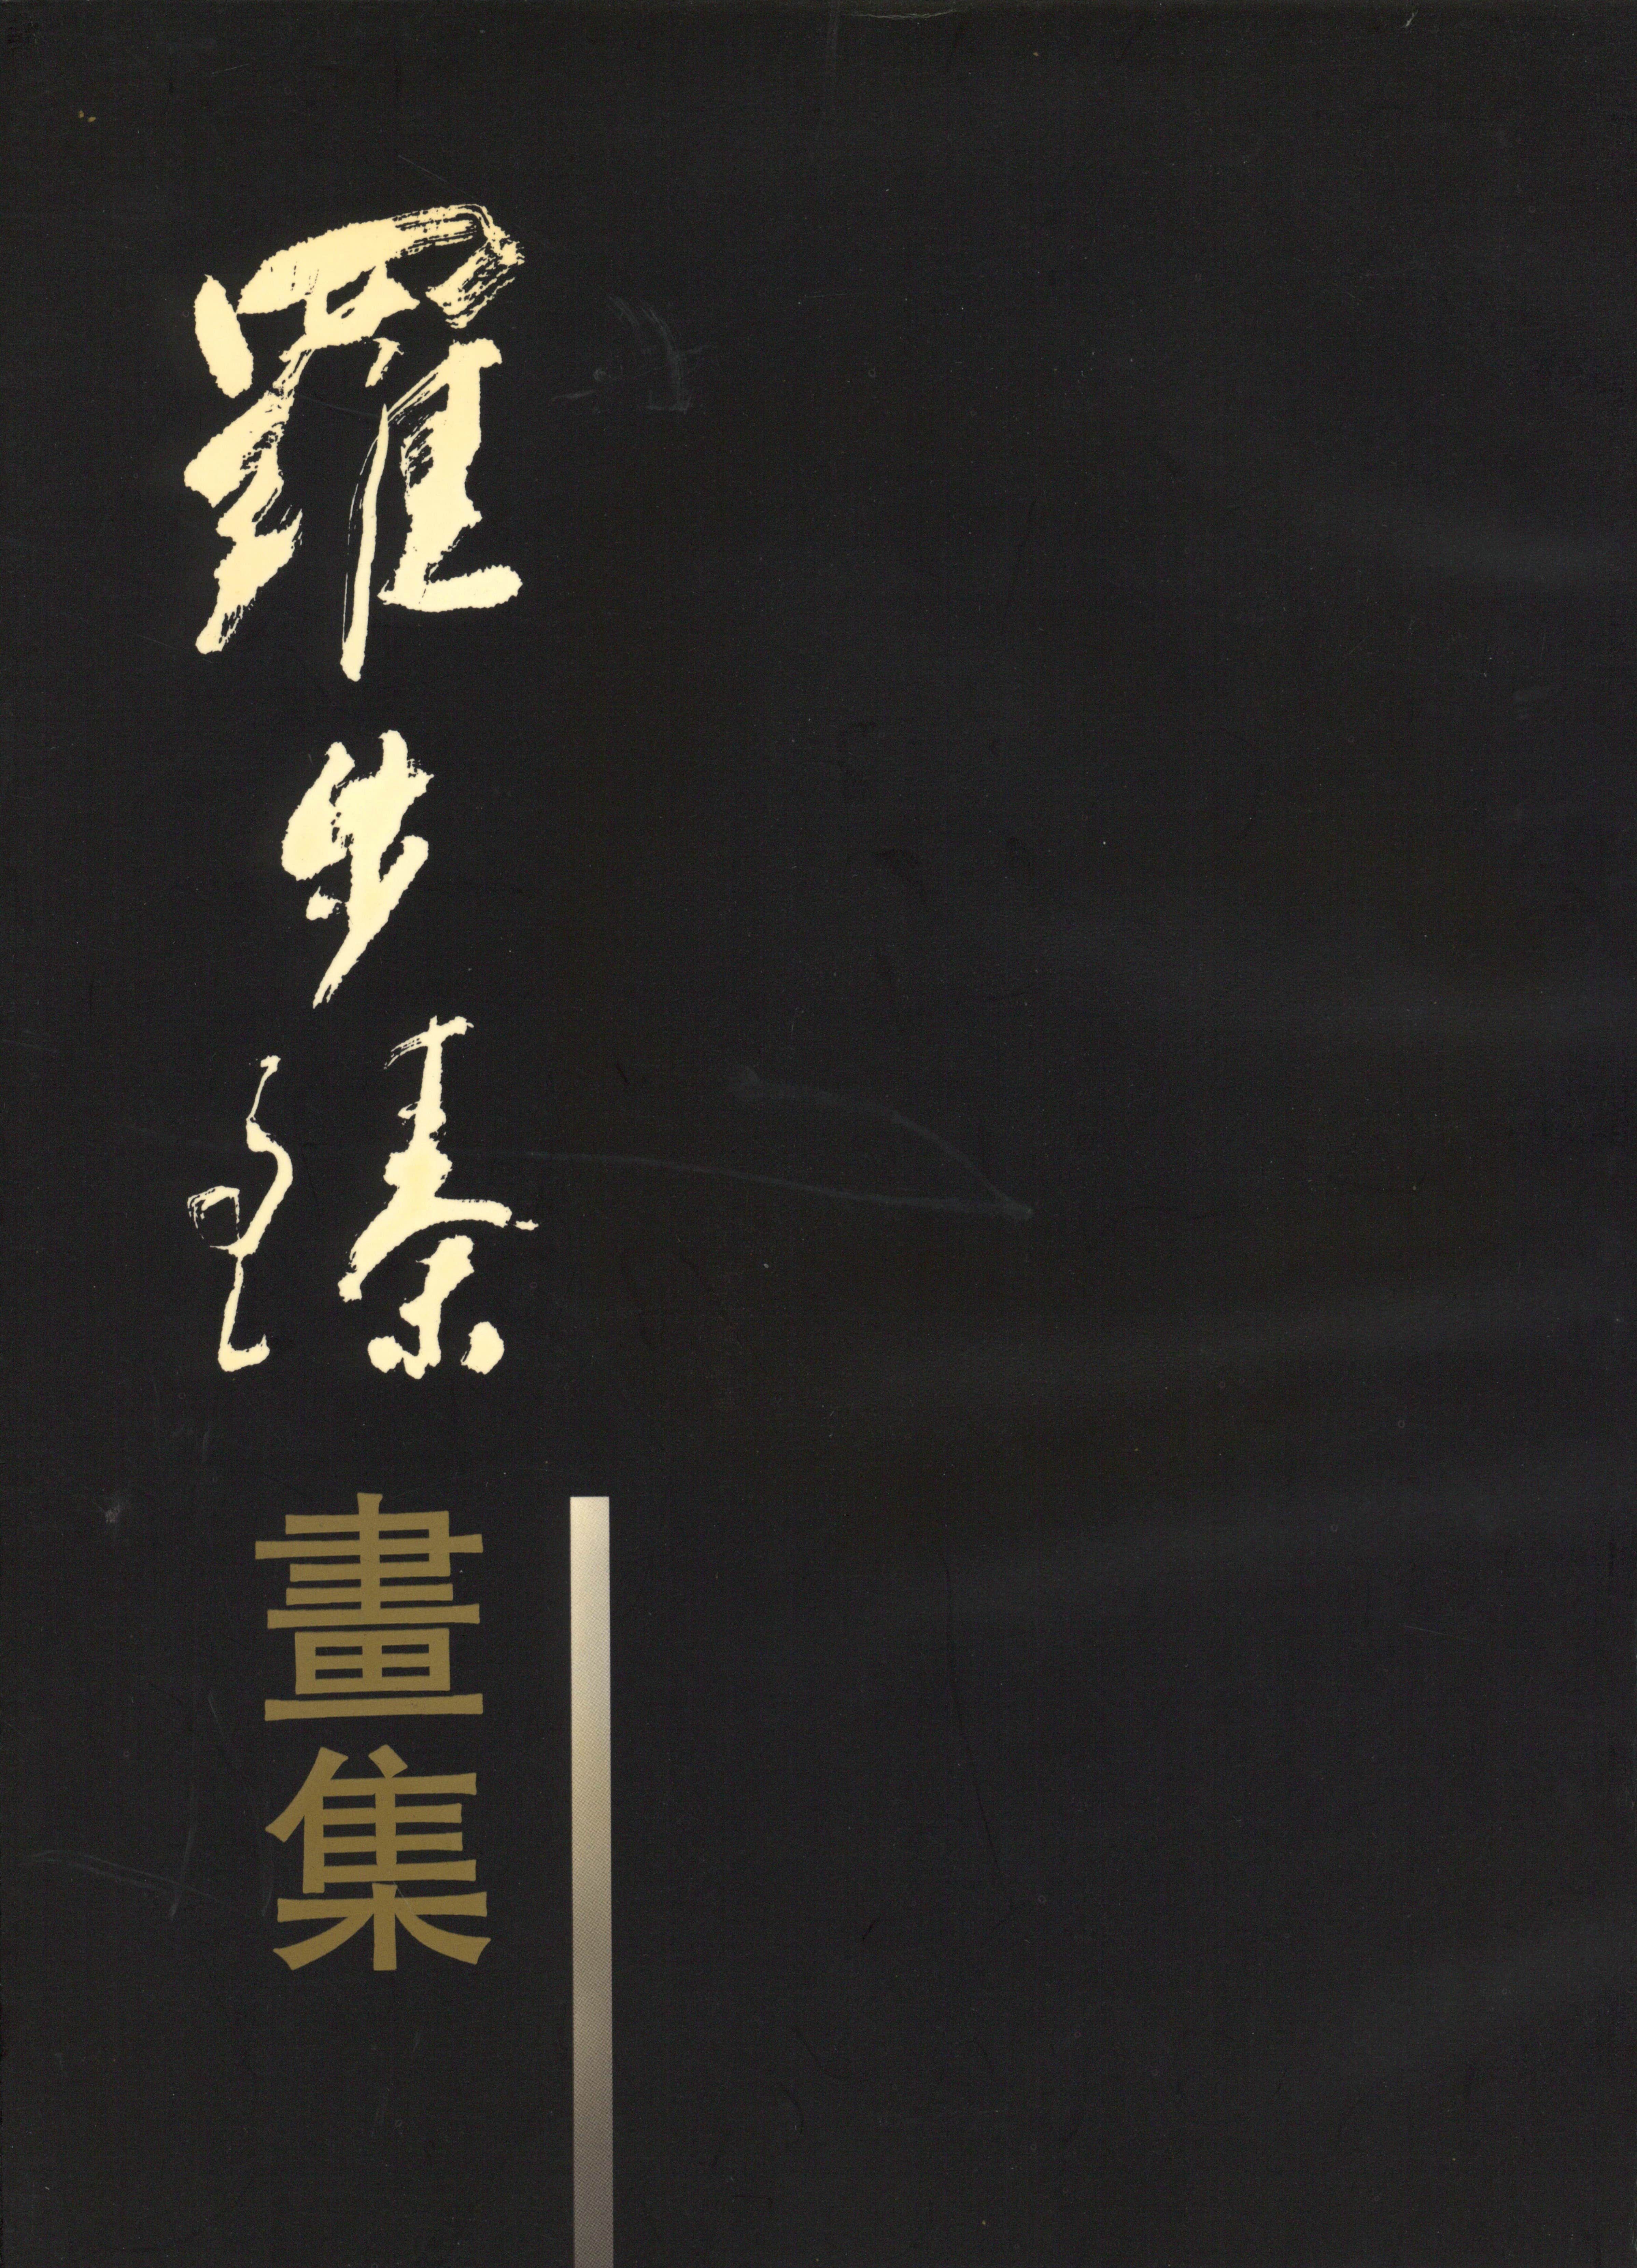 羅步臻
畫集